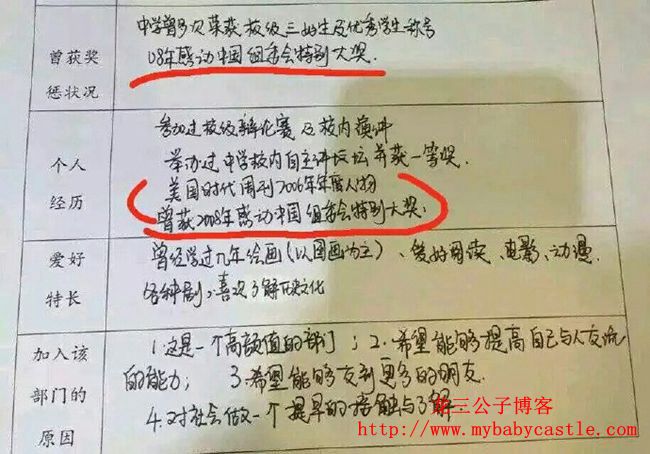 曾获奖
惩状况
中学曾多次荣获校级三好学生及优秀学生称号
08年感动中国组委会特别大奖.
个人
经历
参加过校级辩论赛及校内演讲
举办过中学校内自主讲坛并获一等奖.
美国时代周刊2006年年度人物
曾获2008年感动中国组委会特别大奖.
爱好
特长
曾经学过几年绘画(以国画为主)、爱好阅读、电影、动漫.
各种剧;喜欢了解历史文化
加入该
部门的
原因
1.这是一个高颜值的部门; 2.希望能够提高自己与人交流
的能力; 3.希望能够交到更多的朋友.
4.对社会做一个提早的接触与了解
三公子博客
http://www.mybabycastle.com